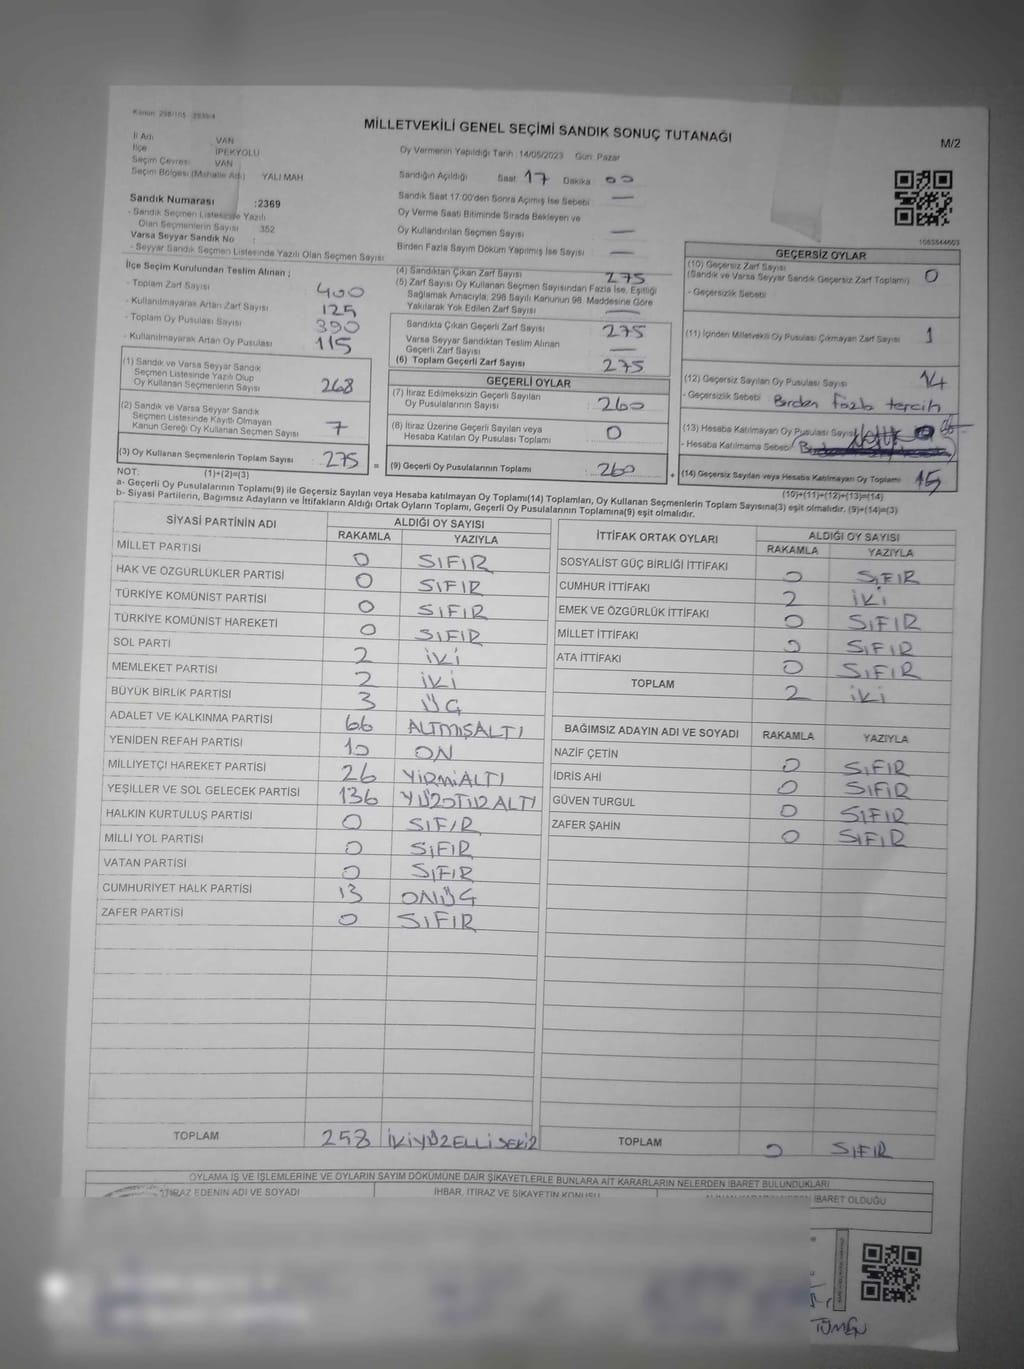 Kanun: 298/105 2839/4
MİLLETVEKİLİ GENEL SEÇİMİ SANDIK SONUÇ TUTANAĞI
M/2
İl Adı : VAN
İlçe : İPEKYOLU
Seçim Çevresi : VAN
Seçim Bölgesi (Mahalle Adı) YALI MAH
Oy Vermenin Yapıldığı Tarih : 14/05/2023 Gün: Pazar
Sandığın Açıldığı Saat 17 Dakika 00
Sandık Saat 17:00'den Sonra Açımış İse Sebebi —
Oy Verme Saati Bitiminde Sırada Bekleyen ve
Oy Kullandırılan Seçmen Sayısı —
Birden Fazla Sayım Döküm Yapılmış İse Sayısı —
Sandık Numarası :2369
- Sandık Seçmen Listesinde Yazılı
Olan Seçmenlerin Sayısı 352
Varsa Seyyar Sandık No :
- Seyyar Sandık Seçmen Listesinde Yazılı Olan Seçmen Sayısı:
1083844603
İlçe Seçim Kurulundan Teslim Alınan ;
- Toplam Zarf Sayısı 400
- Kullanılmayarak Artan Zarf Sayısı 125
- Toplam Oy Pusulası Sayısı 390
- Kullanılmayarak Artan Oy Pusulası 115
(1) Sandık ve Varsa Seyyar Sandık
Seçmen Listesinde Yazılı Olup
Oy Kullanan Seçmenlerin Sayısı 268
(2) Sandık ve Varsa Seyyar Sandık
Seçmen Listesinde Kayıtlı Olmayan
Kanun Gereği Oy Kullanan Seçmen Sayısı 7
(3) Oy Kullanan Seçmenlerin Toplam Sayısı 275
(1)+(2)=(3)
(4) Sandıktan Çıkan Zarf Sayısı 275
(5) Zarf Sayısı Oy Kullanan Seçmen Sayısından Fazla İse, Eşitliği
Sağlamak Amacıyla, 298 Sayılı Kanunun 98. Maddesine Göre
Yakılarak Yok Edilen Zarf Sayısı —
Sandıkta Çıkan Geçerli Zarf Sayısı 275
Varsa Seyyar Sandıktan Teslim Alınan
Geçerli Zarf Sayısı —
(6) Toplam Geçerli Zarf Sayısı 275
GEÇERLİ OYLAR
(7) İtiraz Edilmeksizin Geçerli Sayılan
Oy Pusulalarının Sayısı 260
(8) İtiraz Üzerine Geçerli Sayılan veya
Hesaba Katılan Oy Pusulası Toplamı 0
= (9) Geçerli Oy Pusulalarının Toplamı 260
GEÇERSİZ OYLAR
(10) Geçersiz Zarf Sayısı
(Sandık ve Varsa Seyyar Sandık Geçersiz Zarf Toplamı) 0
- Geçersizlik Sebebi
(11) İçinden Milletvekili Oy Pusulası Çıkmayan Zarf Sayısı 1
(12) Geçersiz Sayılan Oy Pusulası Sayısı 14
- Geçersizlik Sebebi Birden fazla tercih
(13) Hesaba Katılmayan Oy Pusulası Sayısı
- Hesaba Katılmama Sebebi
+ (14) Geçersiz Sayılan veya Hesaba Katılmayan Oy Toplamı 15
(10)+(11)+(12)+(13)=(14)
NOT:
a- Geçerli Oy Pusulalarının Toplamı(9) ile Geçersiz Sayılan veya Hesaba katılmayan Oy Toplamı(14) Toplamları, Oy Kullanan Seçmenlerin Toplam Sayısına(3) eşit olmalıdır. (9)+(14)=(3)
b- Siyasi Partilerin, Bağımsız Adayların ve İttifakların Aldığı Ortak Oyların Toplamı, Geçerli Oy Pusulalarının Toplamına(9) eşit olmalıdır.
SİYASİ PARTİNİN ADI ALDIĞI OY SAYISI
RAKAMLA YAZIYLA
MİLLET PARTİSİ 0 SIFIR
HAK VE ÖZGÜRLÜKLER PARTİSİ 0 SIFIR
TÜRKİYE KOMÜNİST PARTİSİ 0 SIFIR
TÜRKİYE KOMÜNİST HAREKETİ 0 SIFIR
SOL PARTİ 2 İKİ
MEMLEKET PARTİSİ 2 İKİ
BÜYÜK BİRLİK PARTİSİ 3 ÜÇ
ADALET VE KALKINMA PARTİSİ 66 ALTMIŞALTI
YENİDEN REFAH PARTİSİ 10 ON
MİLLİYETÇİ HAREKET PARTİSİ 26 YİRMİALTI
YEŞİLLER VE SOL GELECEK PARTİSİ 136 YÜZOTUZALTI
HALKIN KURTULUŞ PARTİSİ 0 SIFIR
MİLLİ YOL PARTİSİ 0 SIFIR
VATAN PARTİSİ 0 SIFIR
CUMHURİYET HALK PARTİSİ 13 ONÜÇ
ZAFER PARTİSİ 0 SIFIR
TOPLAM 258 İKİYÜZELLİSEKİZ
İTTİFAK ORTAK OYLARI ALDIĞI OY SAYISI
RAKAMLA YAZIYLA
SOSYALİST GÜÇ BİRLİĞİ İTTİFAKI 0 SIFIR
CUMHUR İTTİFAKI 2 İKİ
EMEK VE ÖZGÜRLÜK İTTİFAKI 0 SIFIR
MİLLET İTTİFAKI 0 SIFIR
ATA İTTİFAKI 0 SIFIR
TOPLAM 2 İKİ
BAĞIMSIZ ADAYIN ADI VE SOYADI RAKAMLA YAZIYLA
NAZİF ÇETİN 0 SIFIR
İDRİS AHİ 0 SIFIR
GÜVEN TURGUL 0 SIFIR
ZAFER ŞAHİN 0 SIFIR
TOPLAM 0 SIFIR
OYLAMA İŞ VE İŞLEMLERİNE VE OYLARIN SAYIM DÖKÜMÜNE DAİR ŞİKAYETLERLE BUNLARA AİT KARARLARIN NELERDEN İBARET BULUNDUKLARI
İTİRAZ EDENİN ADI VE SOYADI İHBAR, İTİRAZ VE ŞİKAYETİN KONUSU İBARET OLDUĞU
TÜMEN